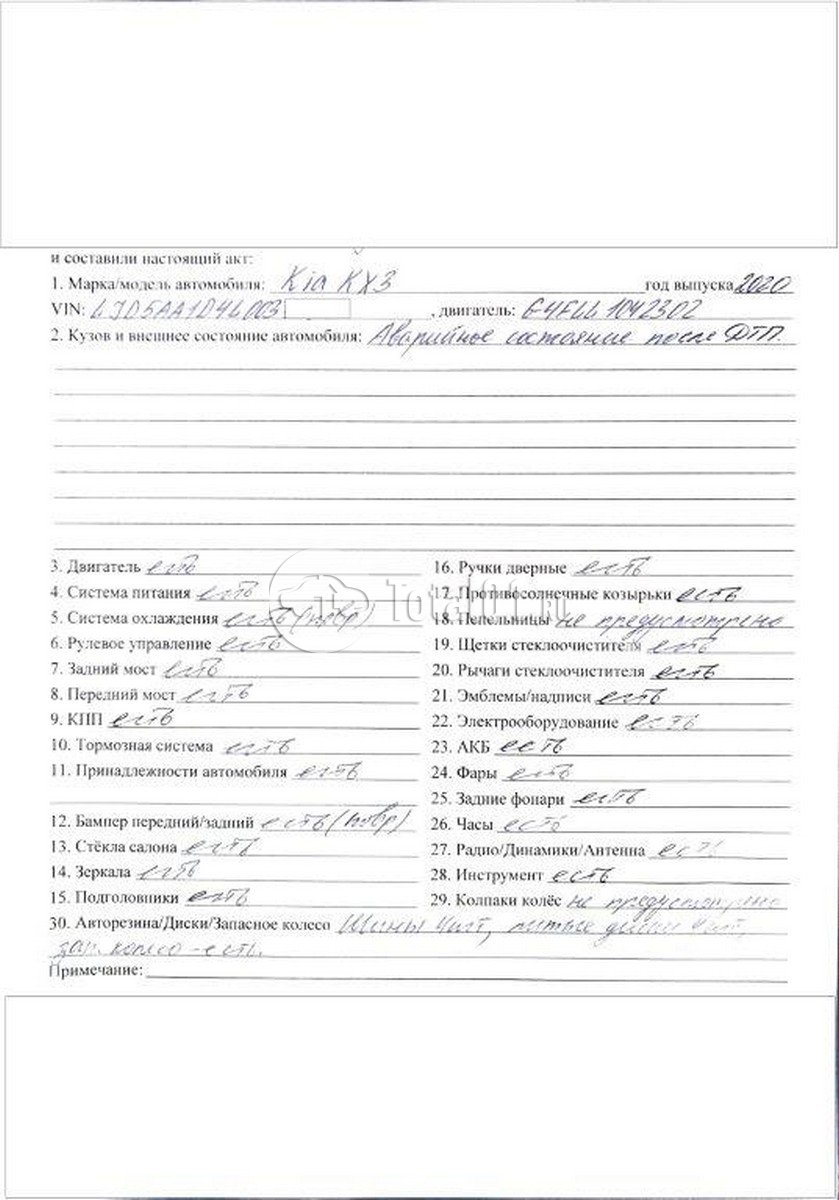 и составили настоящий акт:
1. Марка/модель автомобиля: Kia KX3 год выпуска 2020
VIN: LJD5AA1D4L003 , двигатель: G4FLL1042302
2. Кузов и внешнее состояние автомобиля: Аварийное состояние после ДТП.
3. Двигатель есть
4. Система питания есть
5. Система охлаждения есть (повр)
6. Рулевое управление есть
7. Задний мост есть
8. Передний мост есть
9. КПП есть
10. Тормозная система есть
11. Принадлежности автомобиля есть
12. Бампер передний/задний есть (повр)
13. Стёкла салона есть
14. Зеркала есть
15. Подголовники есть
16. Ручки дверные есть
17. Противосолнечные козырьки есть
18. Пепельницы не предусмотрено
19. Щетки стеклоочистителя есть
20. Рычаги стеклоочистителя есть
21. Эмблемы/надписи есть
22. Электрооборудование есть
23. АКБ есть
24. Фары есть
25. Задние фонари есть
26. Часы есть
27. Радио/Динамики/Антенна есть
28. Инструмент есть
29. Колпаки колёс не предусмотрено
30. Авторезина/Диски/Запасное колесо Шины 4шт, литые диски 4шт,
зап. колесо - есть.
Примечание:
Total01.ru